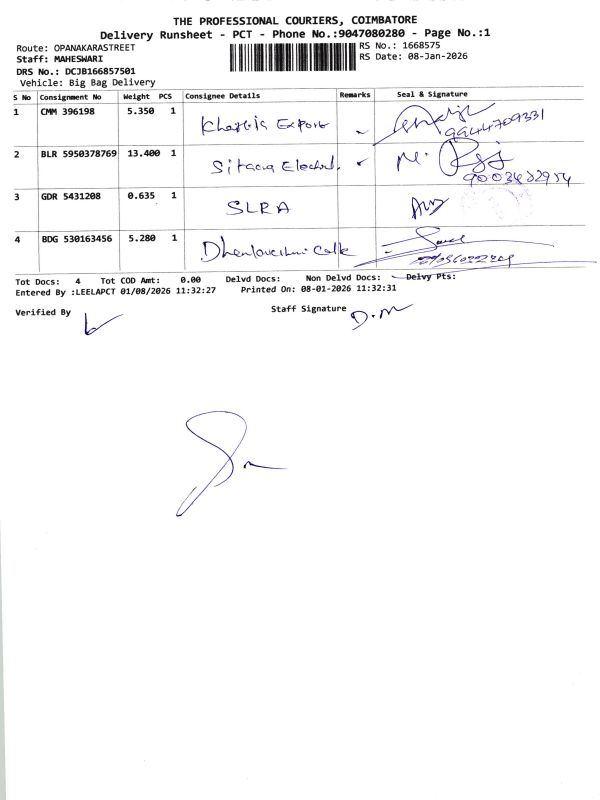 THE PROFESSIONAL COURIERS, COIMBATORE
Delivery Runsheet - PCT - Phone No.:9047080280 - Page No.:1
Route: OPANAKARASTREET
RS No.: 1668575
Staff: MAHESWARI
RS Date: 08-Jan-2026
DRS No.: DCJB166857501
Vehicle: Big Bag Delivery
S No Consignment No Weight PCS Consignee Details Remarks Seal & Signature
1 CMM 396198 5.350 1 9944709331
2 BLR 5950378769 13.400 1
3 GDR 5431208 0.635 1 SLRA
4 BDG 530163456 5.280 1
Tot Docs: 4 Tot COD Amt: 0.00 Delvd Docs: Non Delvd Docs: Delvy Pts:
Entered By :LEELAPCT 01/08/2026 11:32:27 Printed On: 08-01-2026 11:32:31
Verified By
Staff Signature D.M